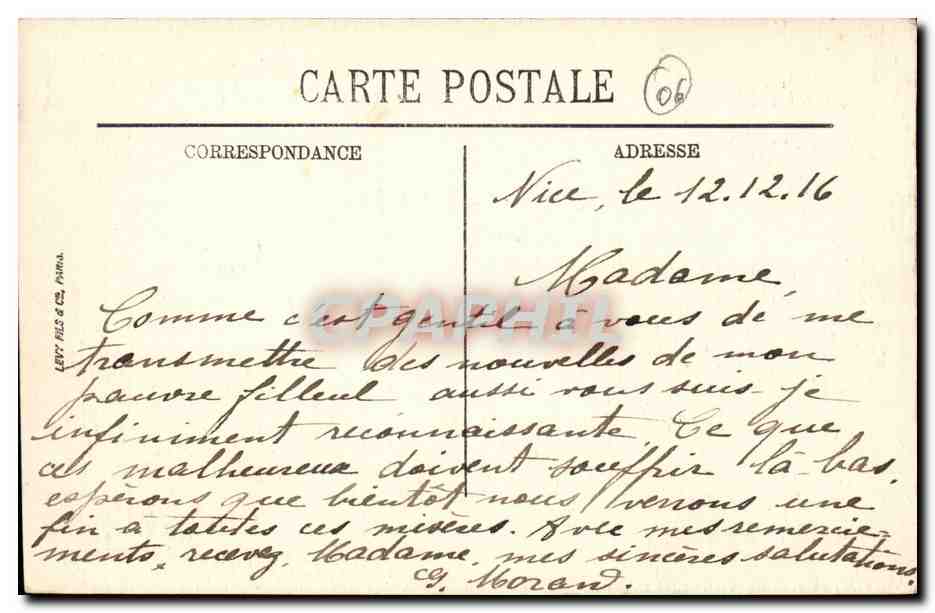 CARTE POSTALE
06
CORRESPONDANCE
ADRESSE
LEVY FILS & Cie, PARIS.
Nice, le 12.12.16
Madame,
Comme c'est gentil à vous de me
transmettre des nouvelles de mon
pauvre filleul aussi vous suis-je
infiniment reconnaissante. Ce que
ces malheureux doivent souffrir là-bas,
espérons que bientôt nous verrons une
fin à toutes ces misères. Avec mes remercie-
ments, recevez, Madame, mes sincères salutations.
G. Morand.
CPAPHIL